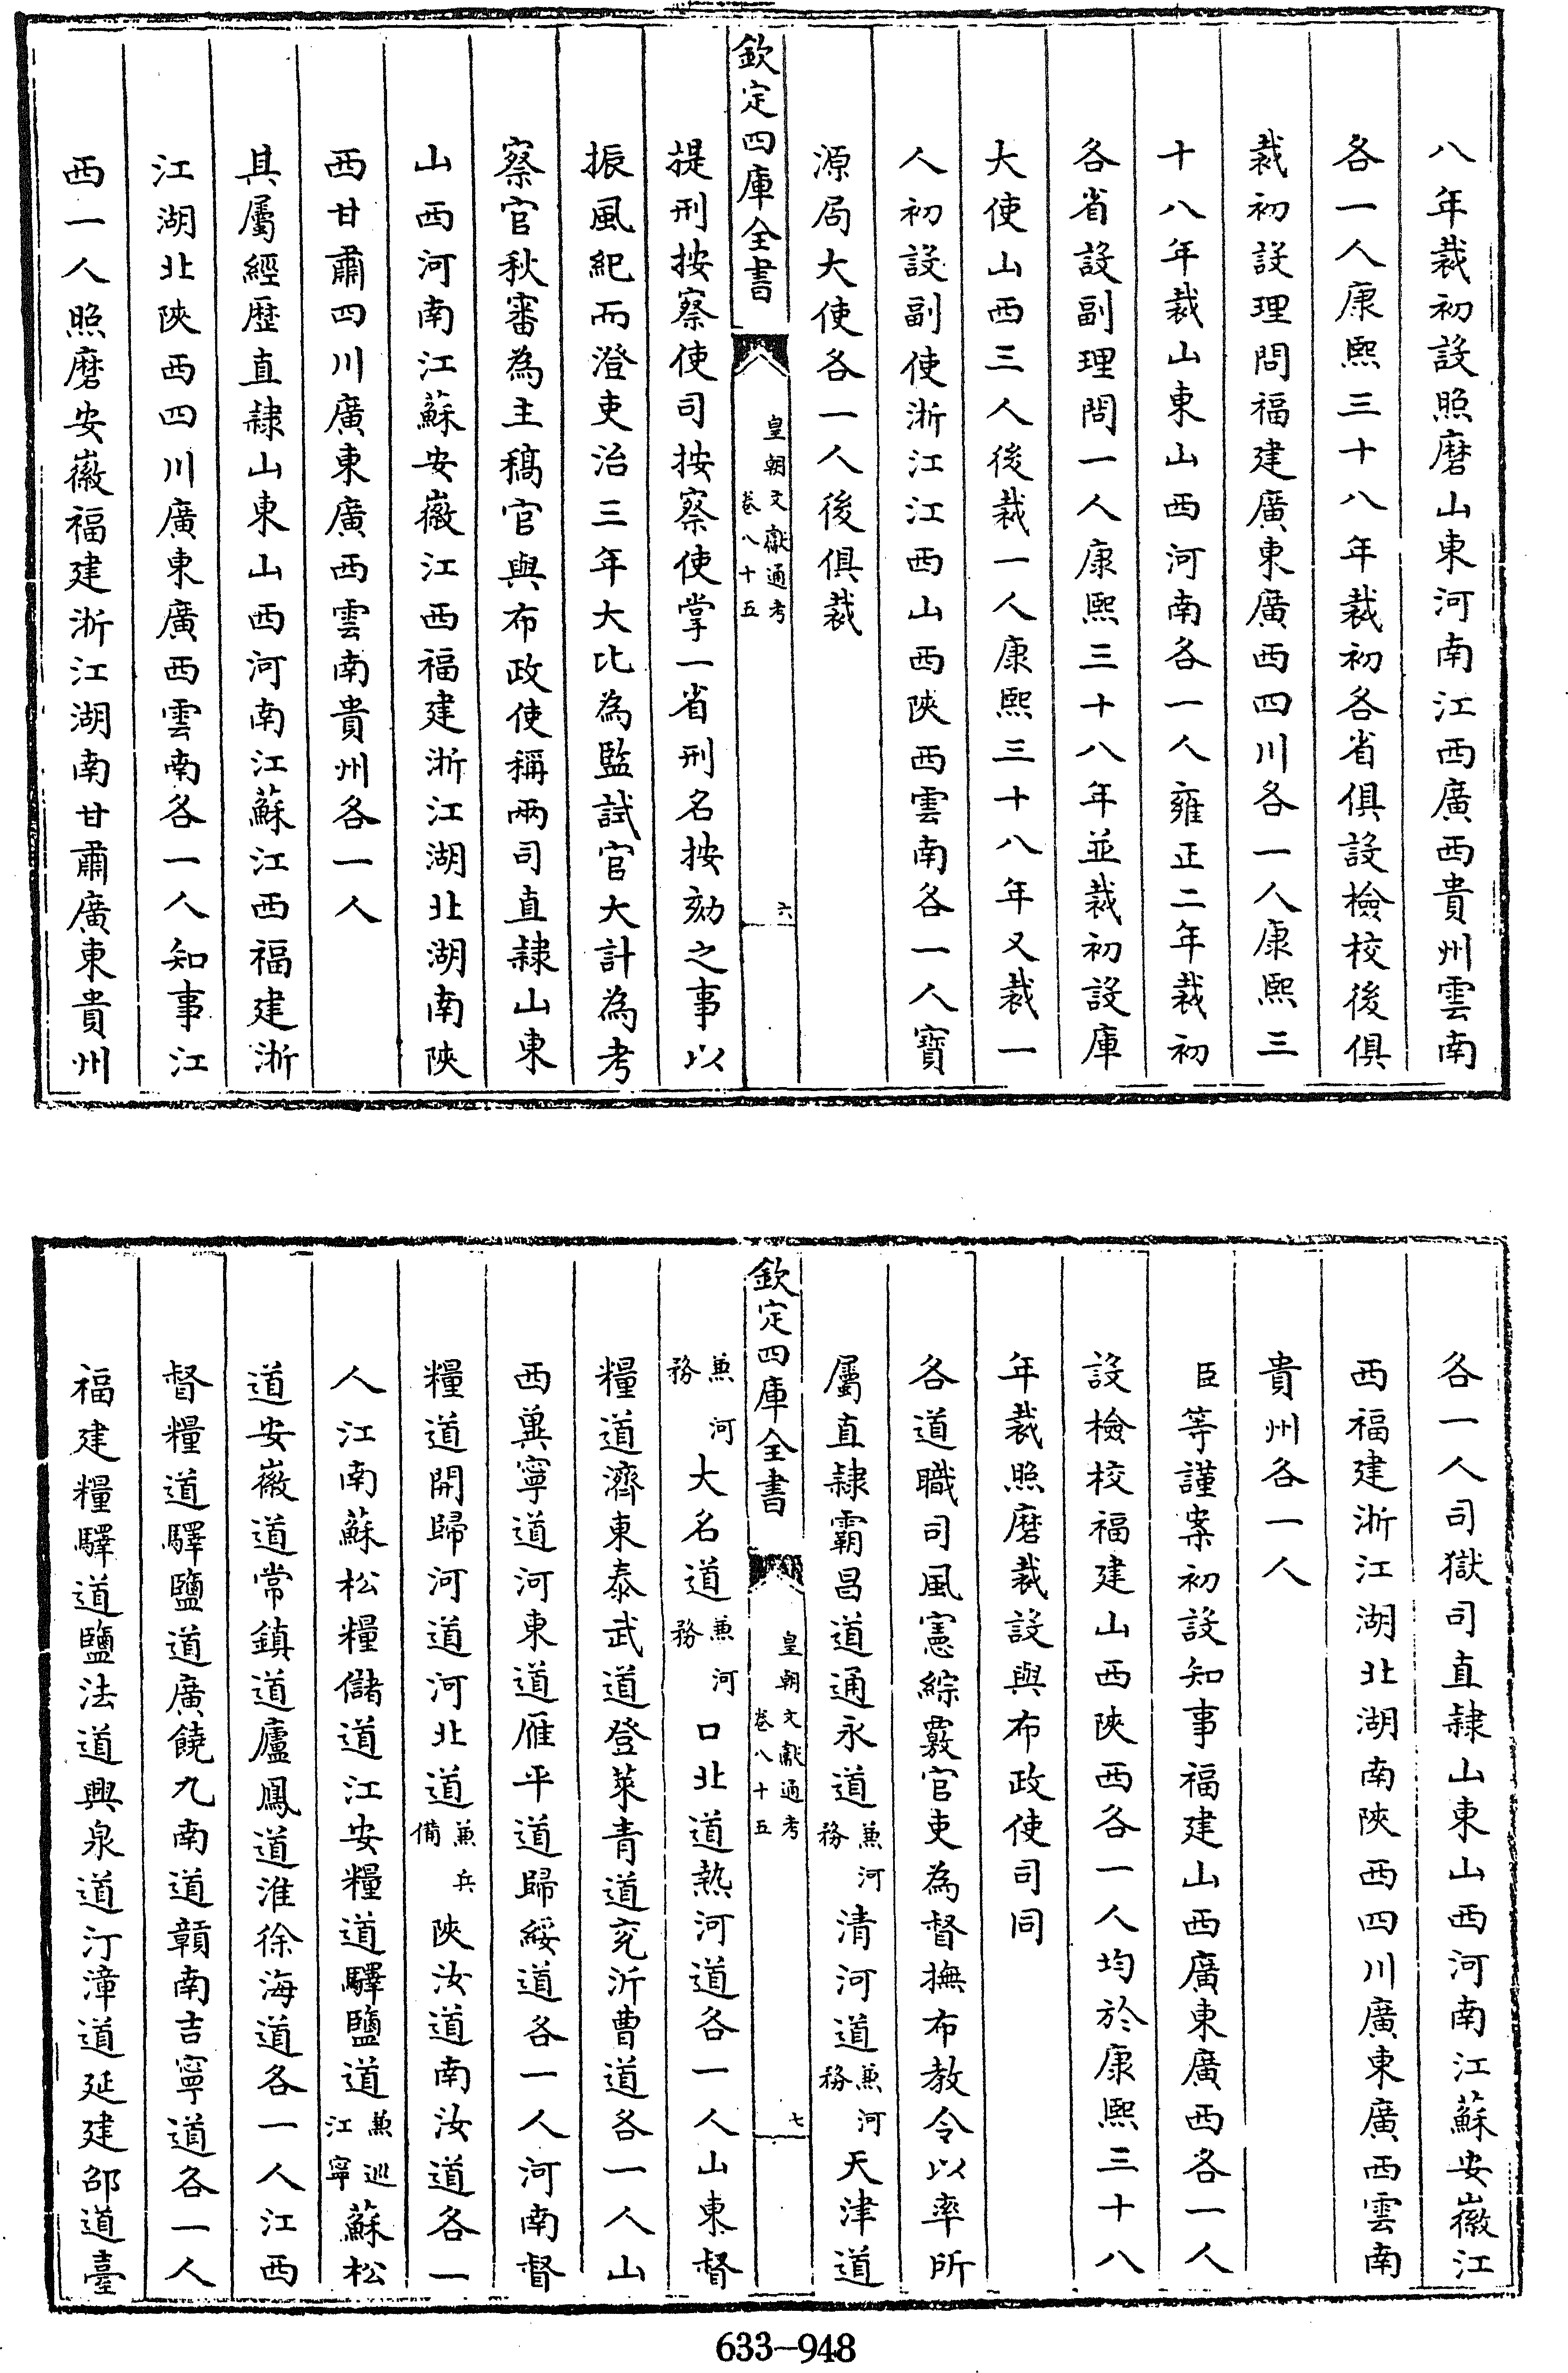 八年裁初設照磨山東河南江西廣西貴州雲南
各一人康熙三十八年裁初各省俱設檢校後俱
裁初設理問福建廣東廣西四川各一人康熙三
十八年裁山東山西河南各一人雍正二年裁初
各省設副理問一人康熙三十八年並裁初設庫
大使山西三人後裁一人康熙三十八年又裁一
人初設副使浙江江西山西陝西雲南各一人寶
源局大使各一人後俱裁
欽定四庫全書
皇朝文獻通考
卷八十五
六
提刑按察使司按察使掌一省刑名按劾之事以
振風紀而澄吏治三年大比為監試官大計為考
察官秋審為主稿官與布政使稱兩司直隸山東
山西河南江蘇安徽江西福建浙江湖北湖南陝
西甘肅四川廣東廣西雲南貴州各一人
其屬經歷直隸山東山西河南江蘇江西福建浙
江湖北陝西四川廣東廣西雲南各一人知事江
西一人照磨安徽福建浙江湖南甘肅廣東貴州
各一人司獄司直隸山東山西河南江蘇安徽江
西福建浙江湖北湖南陝西四川廣東廣西雲南
貴州各一人
臣等謹案初設知事福建山西廣東廣西各一人
設檢校福建山西陝西各一人均於康熙三十八
年裁照磨裁設與布政使司同
各道職司風憲綜覈官吏為督撫布教令以率所
屬直隸霸昌道通永道兼河務清河道兼河務天津道
欽定四庫全書
皇朝文獻通考
卷八十五
七
兼河務大名道兼河務口北道熱河道各一人山東督
糧道濟東泰武道登萊青道兗沂曹道各一人山
西冀寧道河東道雁平道歸綏道各一人河南督
糧道開歸河道河北道兼兵備陝汝道南汝道各一
人江南蘇松糧儲道江安糧道驛鹽道兼巡江寧蘇松
道安徽道常鎮道廬鳳道淮徐海道各一人江西
督糧道驛鹽道廣饒九南道贛南吉寧道各一人
福建糧驛道鹽法道興泉道汀漳道延建邵道臺
633-948